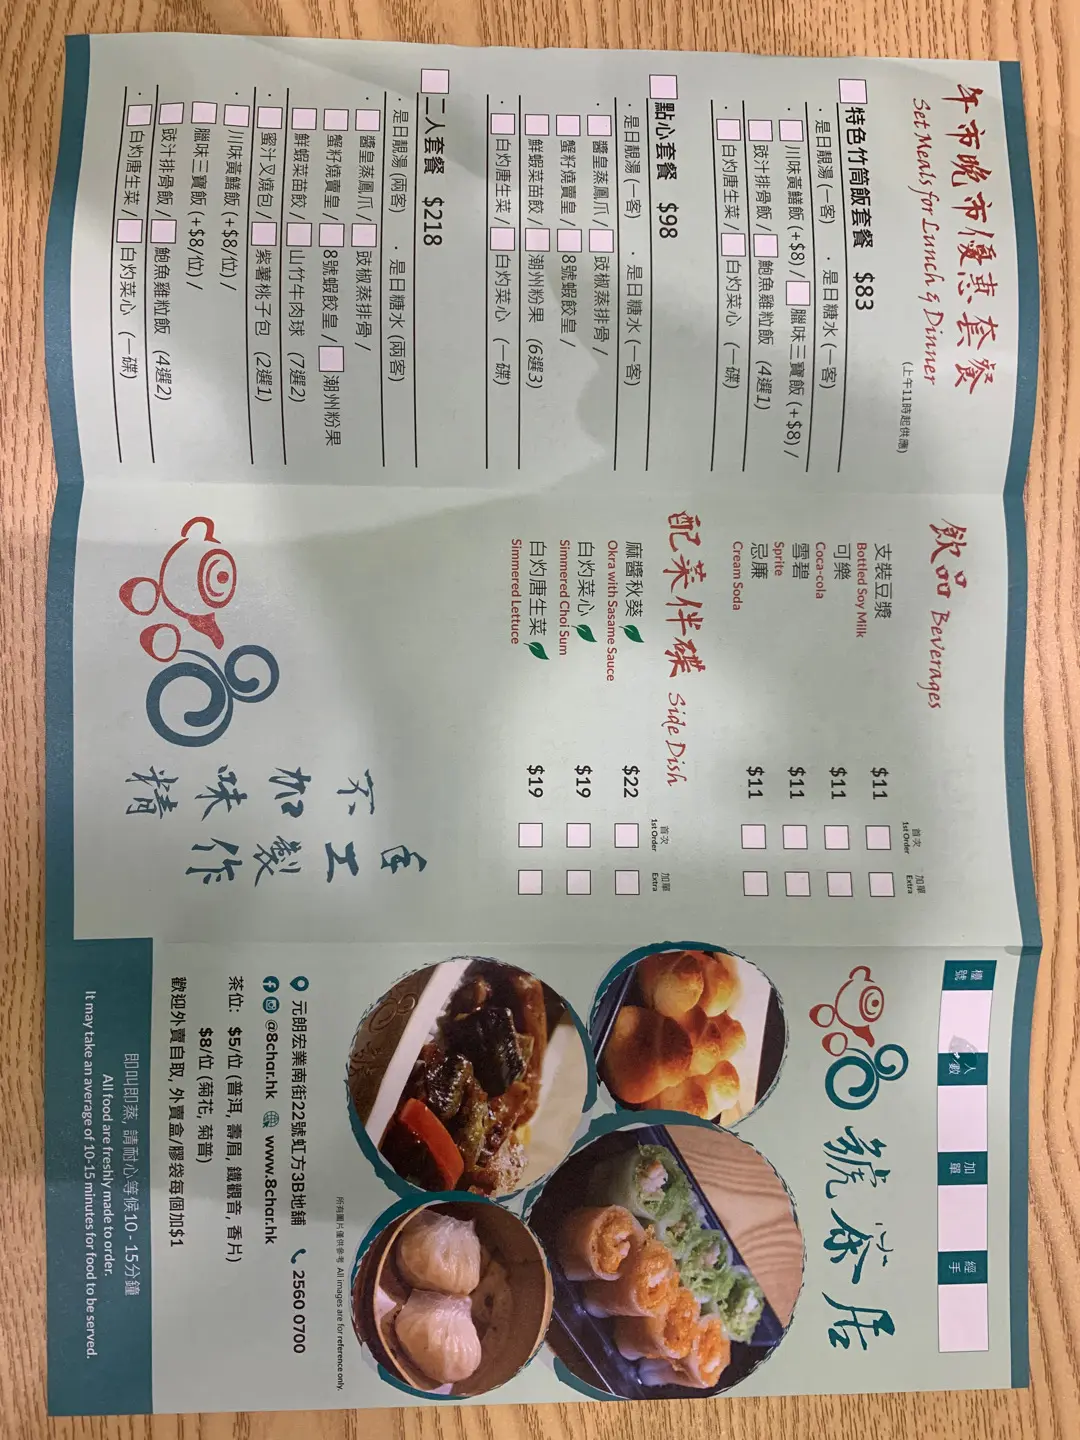 午市晚市優惠套餐
Set Meals for Lunch & Dinner
(上午11時起供應)
特色竹筒飯套餐 $83
· 是日靚湯 (一客) · 是日糖水 (一客)
· 川味黃鱔飯 (+$8) / 臘味三寶飯 (+$8) /
豉汁排骨飯 / 鮑魚雞粒飯 (4選1)
· 白灼唐生菜 / 白灼菜心 (一碟)
點心套餐 $98
· 是日靚湯 (一客) · 是日糖水 (一客)
· 醬皇蒸鳳爪 / 豉椒蒸排骨 /
蟹籽燒賣皇 / 8號蝦餃皇 /
鮮蝦菜苗餃 / 潮州粉果 (6選3)
· 白灼唐生菜 / 白灼菜心 (一碟)
二人套餐 $218
· 是日靚湯 (兩客) · 是日糖水 (兩客)
· 醬皇蒸鳳爪 / 豉椒蒸排骨 /
蟹籽燒賣皇 / 8號蝦餃皇 / 潮州粉果
鮮蝦菜苗餃 / 山竹牛肉球 (7選2)
· 蜜汁叉燒包 / 紫薯桃子包 (2選1)
· 川味黃鱔飯 (+$8/位) /
臘味三寶飯 (+$8/位) /
豉汁排骨飯 / 鮑魚雞粒飯 (4選2)
· 白灼唐生菜 / 白灼菜心 (一碟)
飲品 Beverages
首次 加單
1st Order Extra
支裝豆漿 $11
Bottled Soy Milk
可樂 $11
Coca-cola
雪碧 $11
Sprite
忌廉 $11
Cream Soda
配菜伴碟 Side Dish
首次 加單
1st Order Extra
麻醬秋葵 $22
Okra with Sasame Sauce
白灼菜心 $19
Simmered Choi Sum
白灼唐生菜 $19
Simmered Lettuce
手工製作
不加味精
檯號 人數 加單 經手
8號茶居
所有圖片僅供參考 All images are for reference only.
元朗宏業南街22號虹方3B地舖 2560 0700
@8char.hk www.8char.hk
茶位: $5/位 (普洱, 壽眉, 鐵觀音, 香片)
$8/位 (菊花, 菊普)
歡迎外賣自取, 外賣盒/膠袋每個加$1
即叫即蒸, 請耐心等候10 - 15分鐘
All food are freshly made to order.
It may take an average of 10-15 minutes for food to be served.